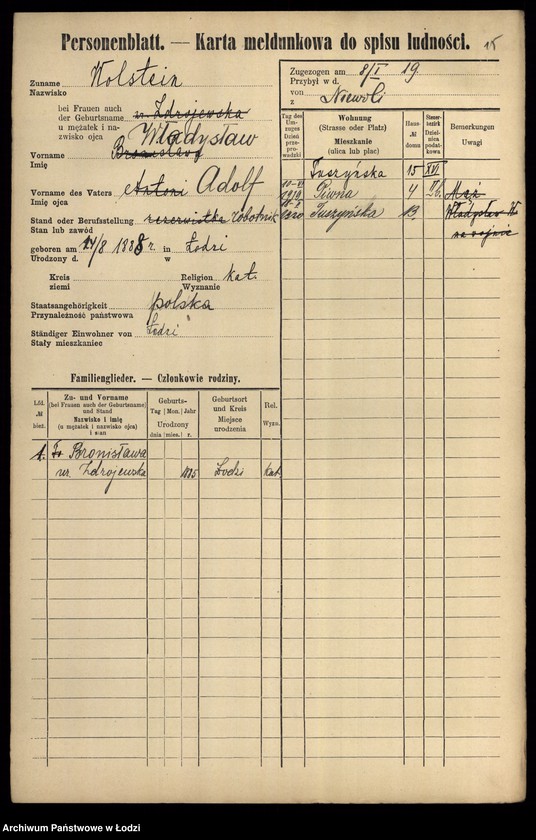 Personenblatt. — Karta meldunkowa do spisu ludności.
15
Zuname Wolstein
Nazwisko
bei Frauen auch
der Geburtsname u. Zdrojewska
u mężatek i na-
zwisko ojca
Władysław
Vorname Bronisława
Imię
Vorname des Vaters Antoni Adolf
Imię ojca
Stand oder Berufsstellung rezerwistka robotnik
Stan lub zawód
geboren am 24/8 1888 r. in Łodzi
Urodzony d. w
Kreis Religion kat.
ziemi Wyznanie
Staatsangehörigkeit polska
Przynależność państwowa
Ständiger Einwohner von Łodzi
Stały mieszkaniec
Zugezogen am 8/I 19.
Przybył w d.
von Niewoli
z
Tag des Um-zuges Dzień prze-prowadzki
Wohnung (Strasse oder Platz) Mieszkanie (ulica lub plac)
Haus-№ domu
Steuer-bezirk Dzielnica podatkowa
Bemerkungen Uwagi
Tuszyńska 15 XVI
1919 Piwna 4 Mąż
1920 Tuszyńska 13 Władysław W.
na wojnie
Familienglieder. — Członkowie rodziny.
Lfd. № bież.
Zu- und Vorname (bei Frauen auch der Geburtsname) und Stand Nazwisko i imię (u mężatek i nazwisko ojca) i stan
Geburts- Tag Mon. Jahr Urodzony dnia mies. r.
Geburtsort und Kreis Miejsce urodzenia
Rel. Wyzn.
1. Bronisława
ur. Zdrojewska 1885 Łodzi kat.
Archiwum Państwowe w Łodzi